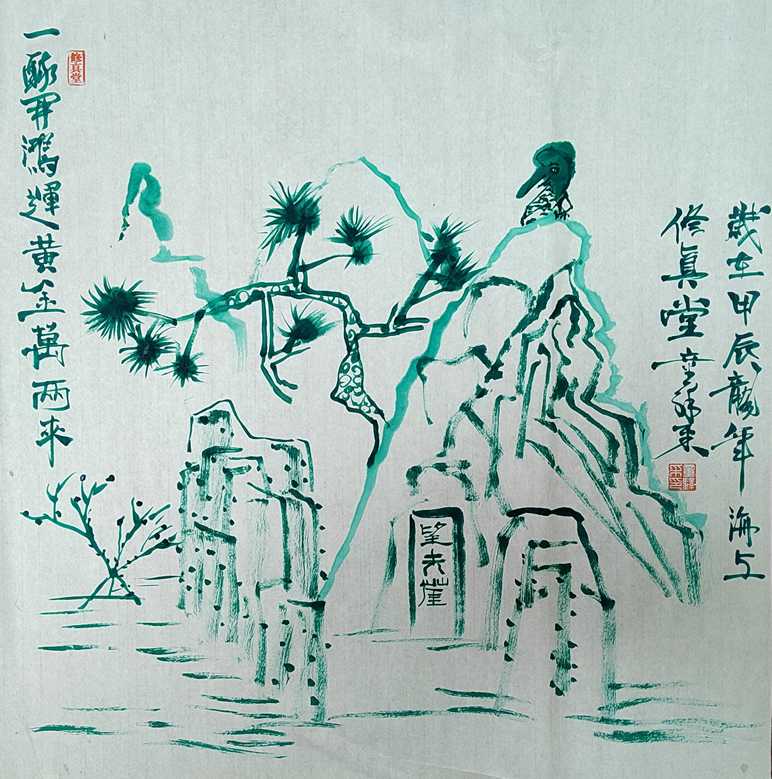 歲在甲辰龍年海上
修真堂童祥来
望夫崖
一開鴻運黃金萬兩来
修真堂